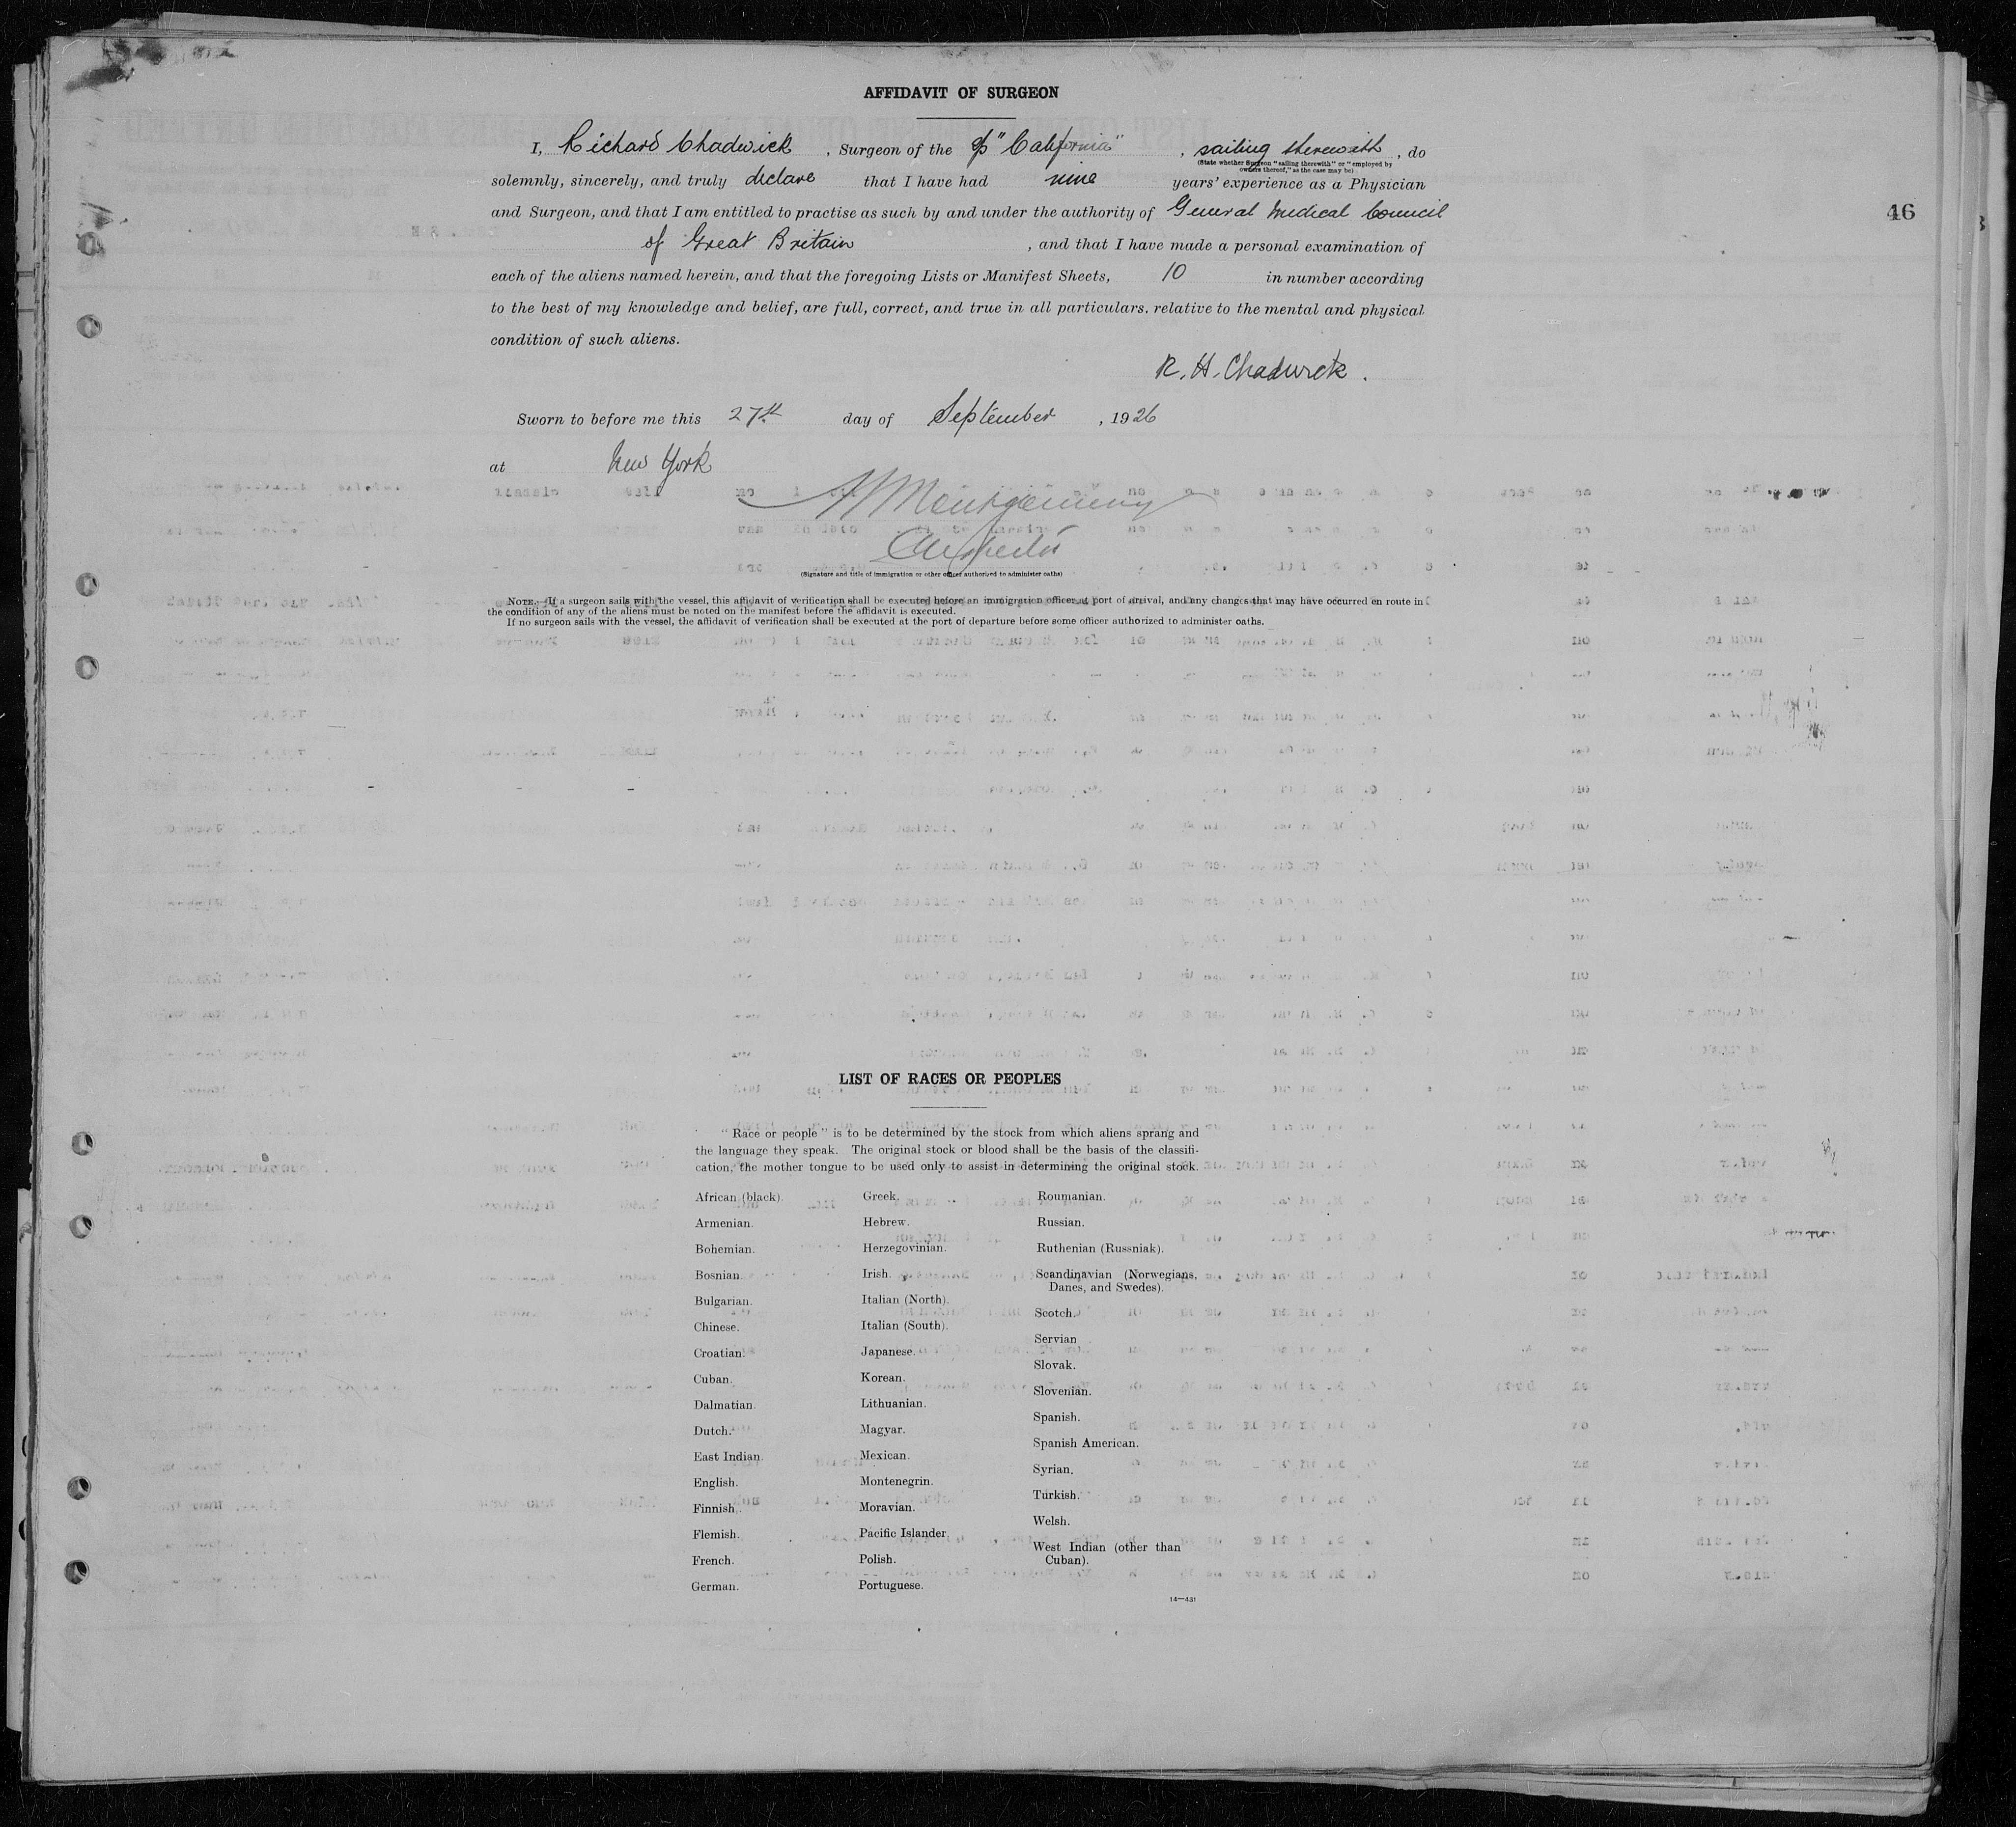 AFFIDAVIT OF SURGEON
I, Richard Chadwick, Surgeon of the "California", sailing therewith, do
(State whether Surgeon "sailing therewith" or "employed by
owners thereof," as the case may be)
solemnly, sincerely, and truly declare that I have had nine years' experience as a Physician
and Surgeon, and that I am entitled to practise as such by and under the authority of General Medical Council
46
of Great Britain, and that I have made a personal examination of
each of the aliens named herein, and that the foregoing Lists or Manifest Sheets, 10 in number according
to the best of my knowledge and belief, are full, correct, and true in all particulars. relative to the mental and physical
condition of such aliens.
R. H. Chadwick.
Sworn to before me this 27th day of September, 1926
at New York
Montgomery
(Signature and title of immigration or other officer authorized to administer oaths)
NOTE.—If a surgeon sails with the vessel, this affidavit of verification shall be executed before an immigration officer at port of arrival, and any changes that may have occurred en route in
the condition of any of the aliens must be noted on the manifest before the affidavit is executed.
If no surgeon sails with the vessel, the affidavit of verification shall be executed at the port of departure before some officer authorized to administer oaths.
LIST OF RACES OR PEOPLES
"Race or people" is to be determined by the stock from which aliens sprang and
the language they speak. The original stock or blood shall be the basis of the classifi-
cation, the mother tongue to be used only to assist in determining the original stock.
African (black).
Armenian.
Bohemian.
Bosnian.
Bulgarian.
Chinese.
Croatian.
Cuban.
Dalmatian.
Dutch.
East Indian.
English.
Finnish.
Flemish.
French.
German.
Greek.
Hebrew.
Herzegovinian.
Irish.
Italian (North).
Italian (South).
Japanese.
Korean.
Lithuanian.
Magyar.
Mexican.
Montenegrin.
Moravian.
Pacific Islander.
Polish.
Portuguese.
Roumanian.
Russian.
Ruthenian (Russniak).
Scandinavian (Norwegians,
Danes, and Swedes).
Scotch.
Servian
Slovak.
Slovenian.
Spanish.
Spanish American.
Syrian.
Turkish.
Welsh.
West Indian (other than
Cuban).
14—431